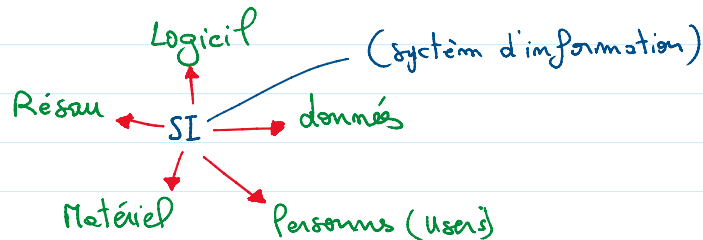 Logiciel
(systèm d'information)
Résau
SI
donnés
Matériel
Personns (users)